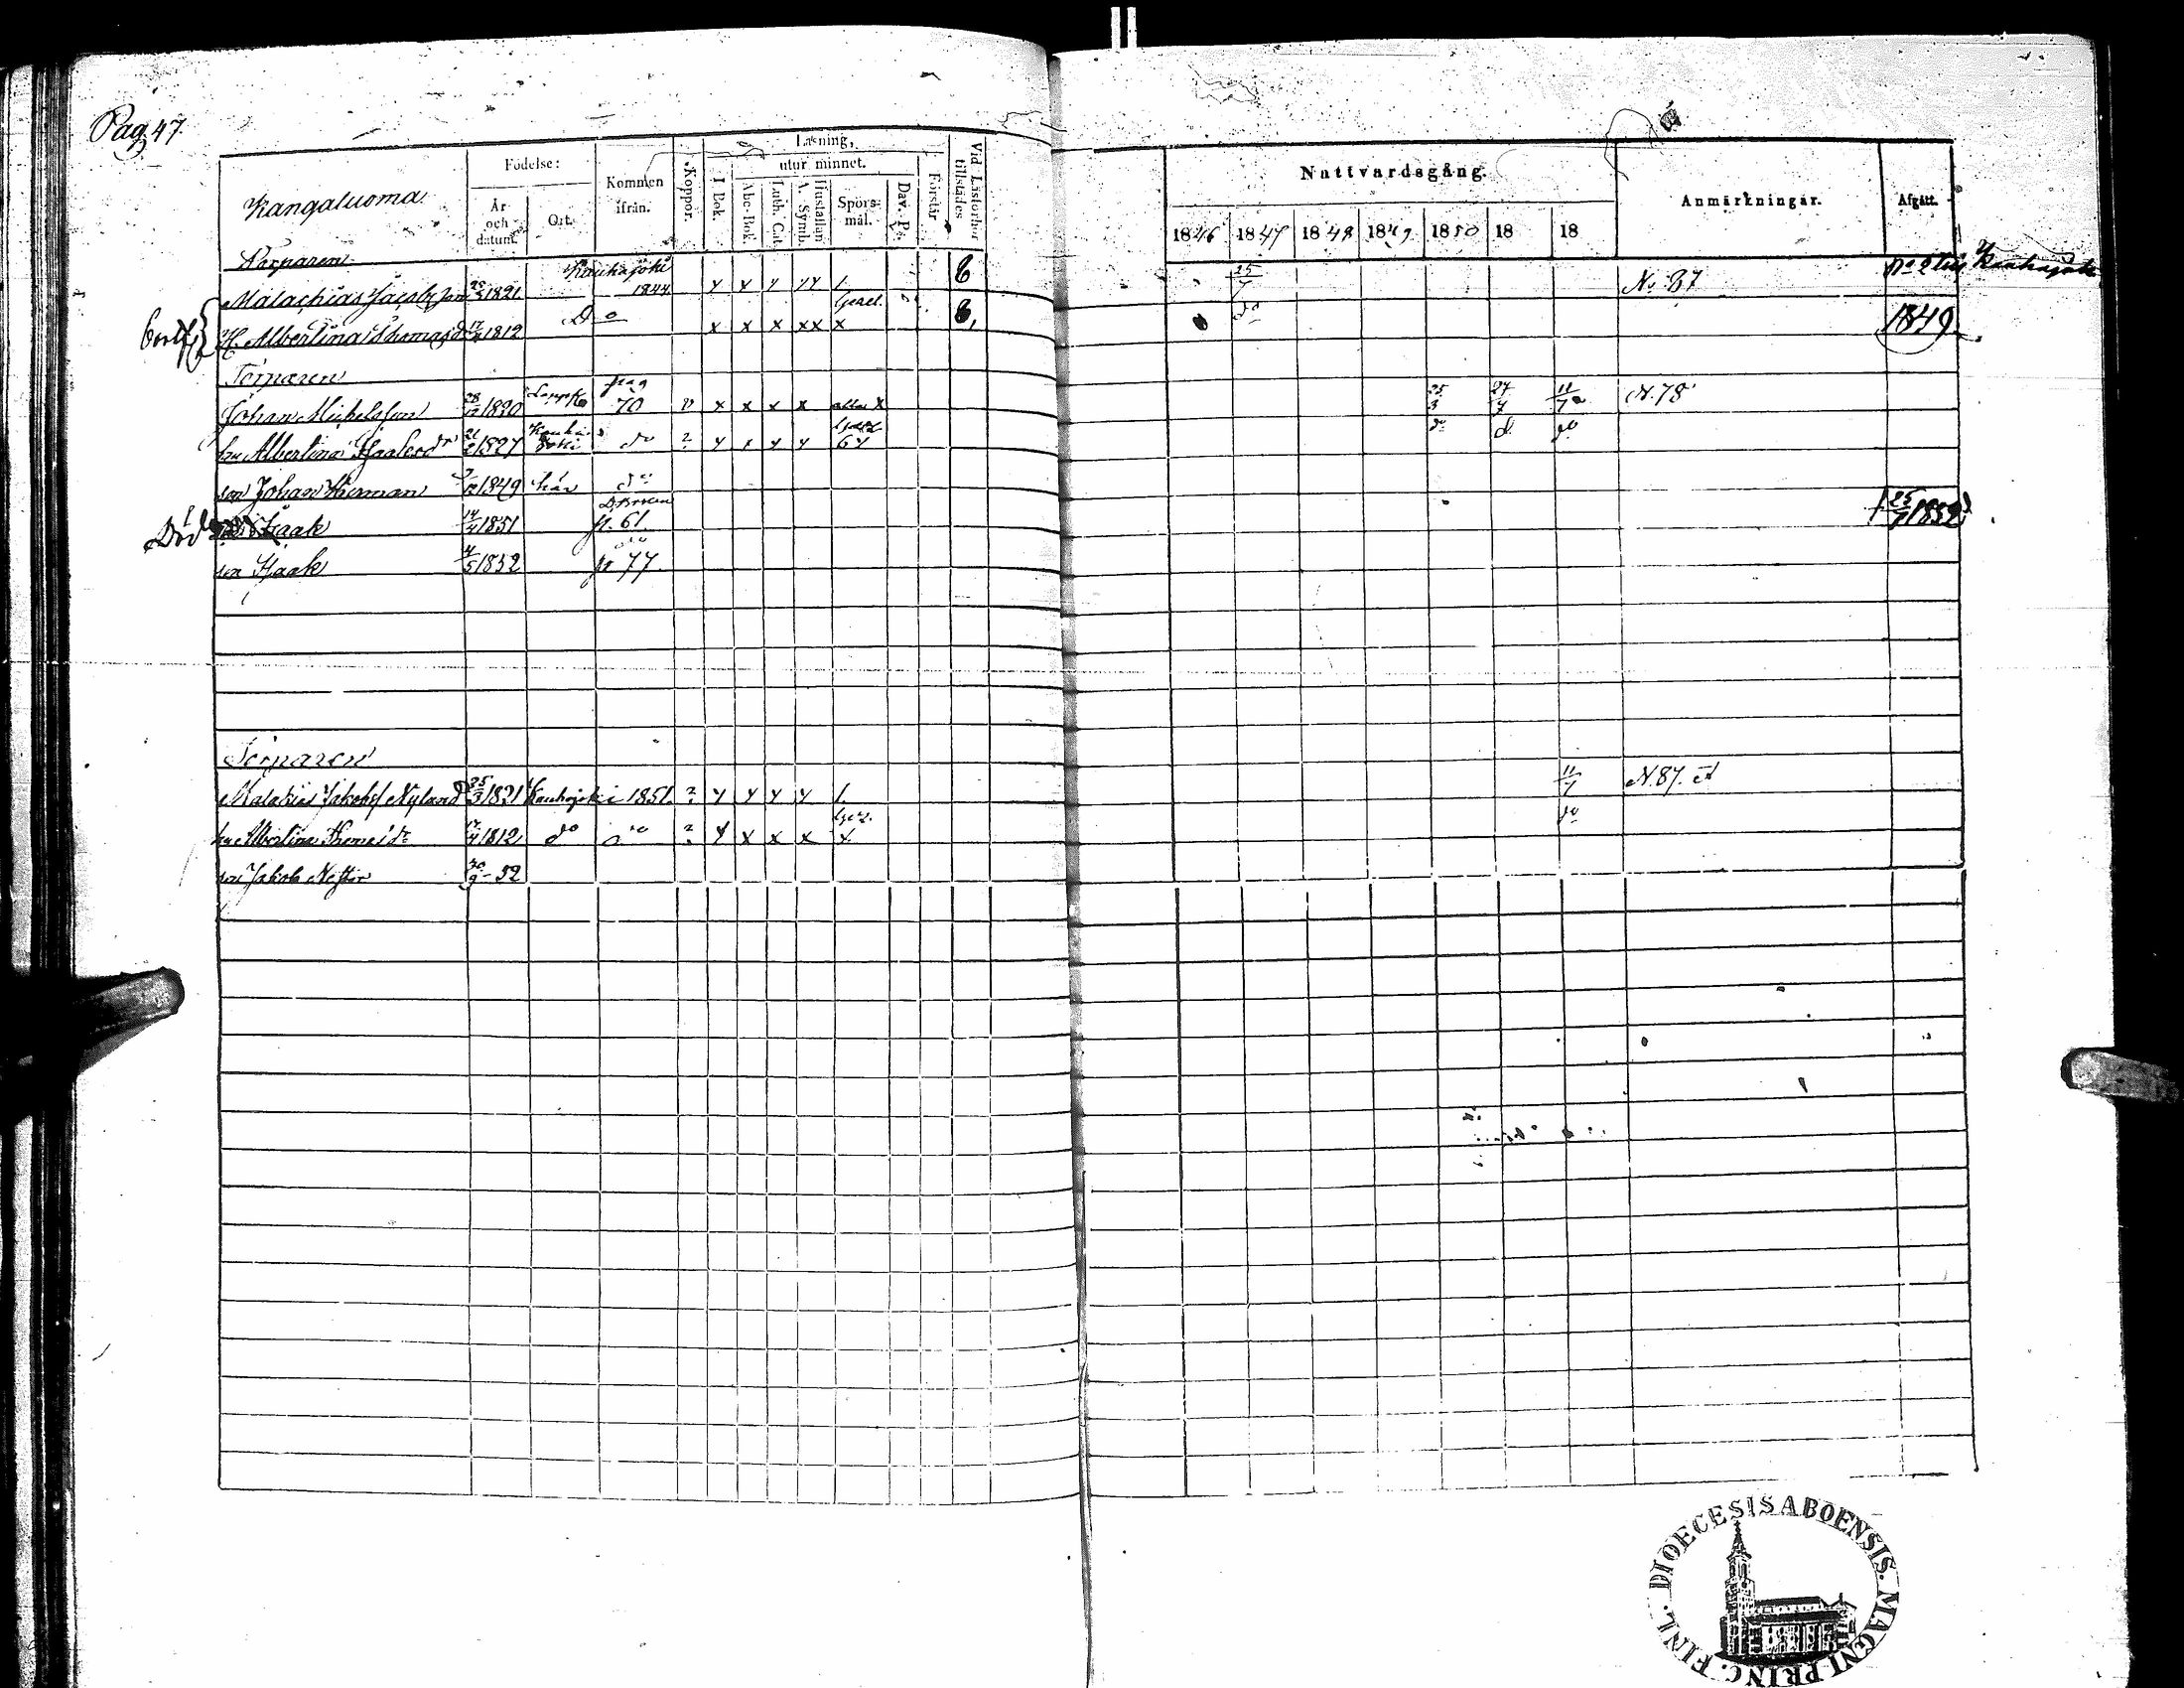 Pag. 47.
Kangaluoma
Födelse:
År och datum.
Ort.
Kommen ifrån.
Koppor.
Läsning,
utur minnet.
I Bok.
Abc-Bok.
Luth. Cat.
Hustaflan A. Symb.
Spörs-mål.
Dav. Ps.
Förstår
Vid Läsförhör tillstädes
Nattvardsgång.
1846 1847 1848 1849 1850 18 18
Anmärkningar.
Afgått.
Malachias Jacobsson 25/3 1821 Kauhajoki 1844 1. 25/7 No. 87 No 2 till Kauhajoki
H. Albertina Thomasdr 17/4 1812 Do x x x xx x do 1849
Torparen
Johan Michelsson 28/12 1820 70 v x x x x alla x 25/3 27/7 11/7 N. 78
hu Albertina Isaksdr 21/2 1827 Kauhajoki do 2 do d. do
son Johan Herman 1849 här do
Död son Isaak 14/4 1851 61. † 25/7 1852
son Isaak 4/5 1852 77.
Torparen
Malakias Jakobss Nylund 25/3 1821 Kauhajoki 1851. 2 1. 11/7 N. 87.
hu Albertina Thomasdr 17/4 1812 do do 2 x x x x do
son Jakob Nestor 20/9 - 52
DIOECESIS ABOENSIS. MAGNI PRINC. FINL.